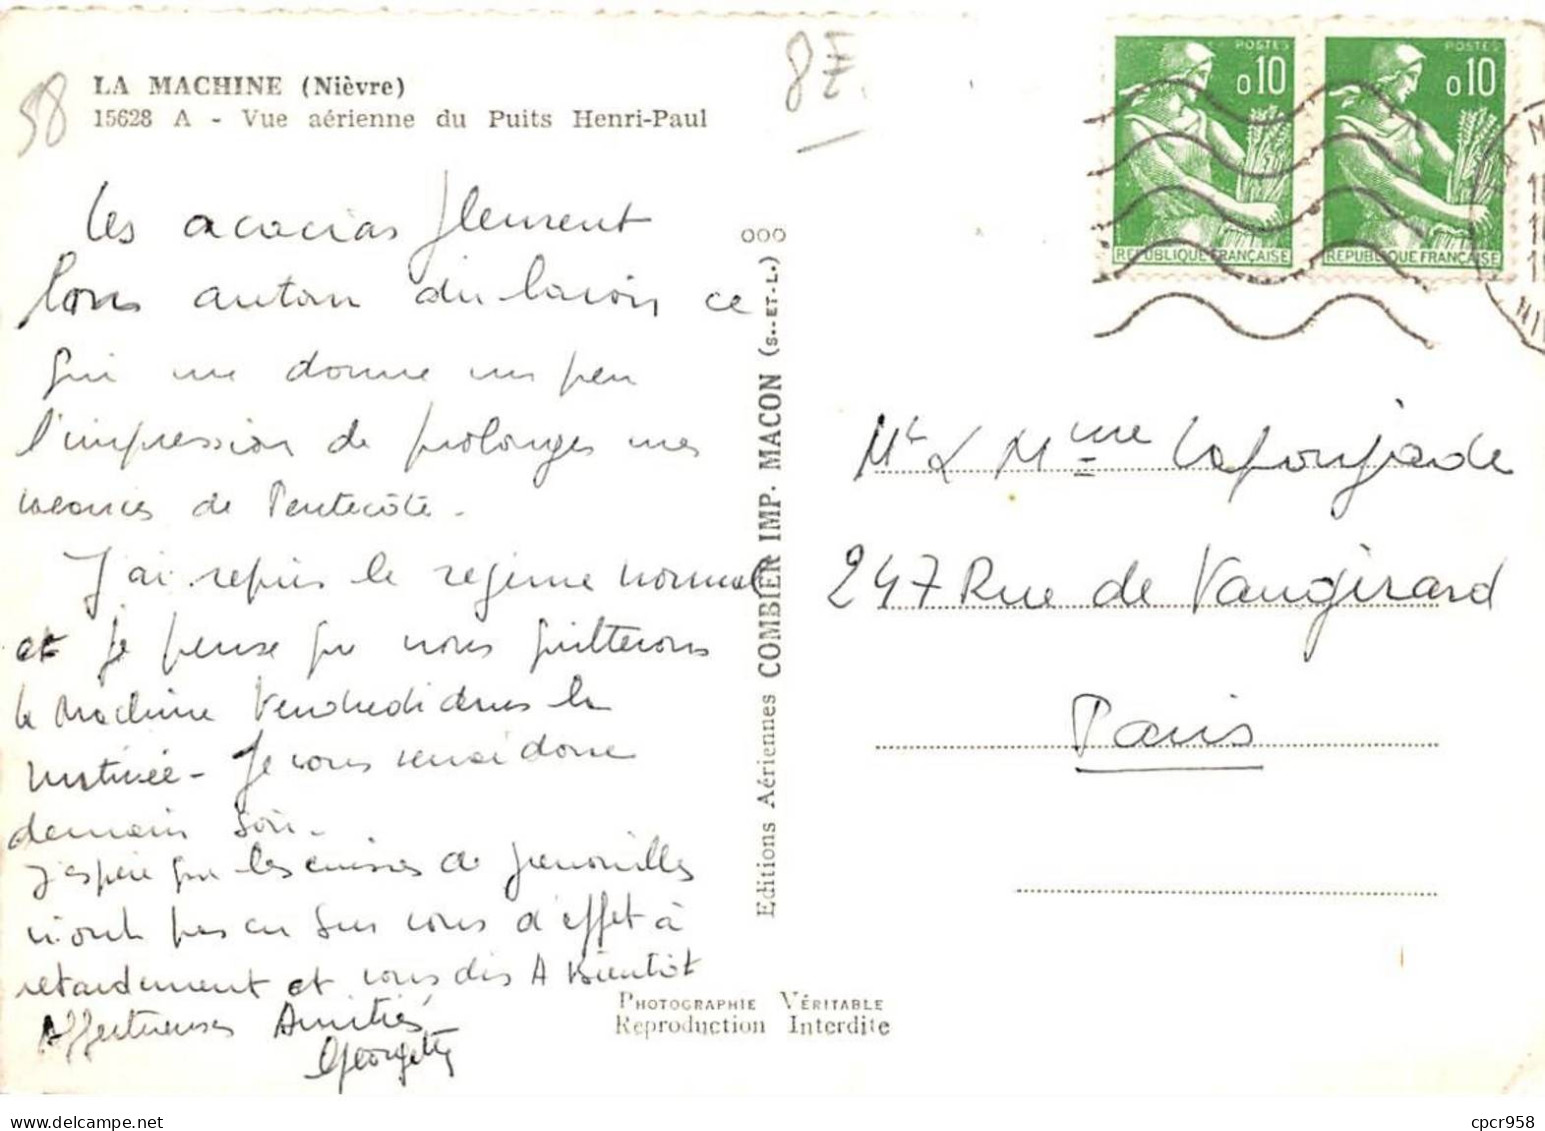 58
8E
LA MACHINE (Nièvre)
15628 A - Vue aérienne du Puits Henri-Paul
POSTES
0,10
REPUBLIQUE FRANÇAISE
POSTES
0,10
REPUBLIQUE FRANÇAISE
Les acacias fleurent
tous autour du lavoir ce
qui me donne un peu
l'impression de prolonger mes
vacances de Pentecôte.
J'ai repris le régime normal
et je pense que nous quitterons
la Machine Vendredi dans la
matinée - Je vous verrai donc
demain soir.
J'espère que les cuisses de grenouilles
n'ont pas eu sur vous d'effet à
retardement et vous dis A Bientôt
Affectueuses Amitiés
Georgette
ooo
Editions Aériennes COMBIER IMP. MACON (S.-ET-L.)
Mr & Mme Lafoujade
247 Rue de Vaugirard
Paris
PHOTOGRAPHIE VÉRITABLE
Reproduction Interdite
cpcr958